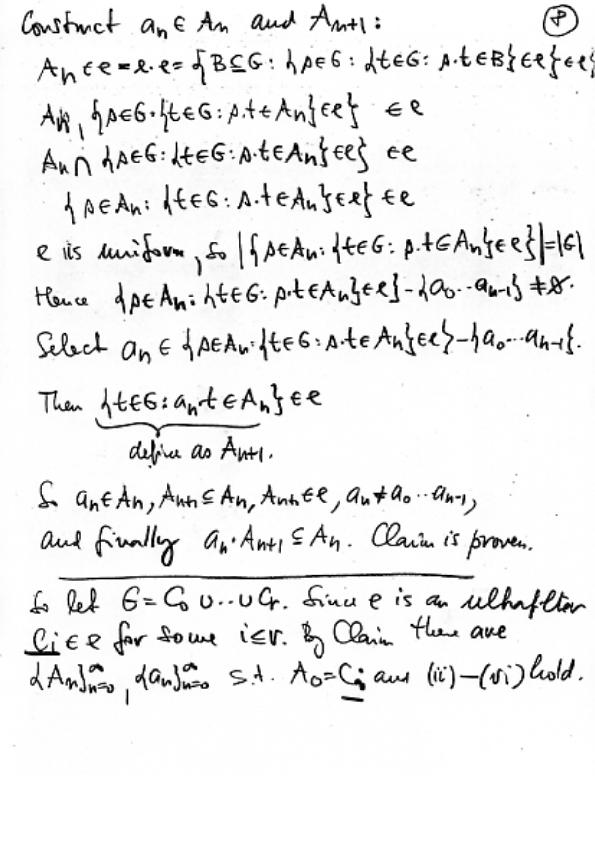 Construct aₙ ∈ Aₙ and Aₙ₊₁: 8
Aₙ ∈ e = e·e = {B⊆G: {s∈G: {t∈G: s·t∈B}∈e}∈e}
Aₙ, {s∈G: {t∈G: s·t∈Aₙ}∈e} ∈ e
Aₙ ∩ {s∈G: {t∈G: s·t∈Aₙ}∈e} ∈ e
{s∈Aₙ: {t∈G: s·t∈Aₙ}∈e} ∈ e
e is uniform, so |{s∈Aₙ: {t∈G: s·t∈Aₙ}∈e}|=|G|
Hence {s∈Aₙ: {t∈G: s·t∈Aₙ}∈e} - {a₀..aₙ₋₁} ≠ ∅.
Select aₙ ∈ {s∈Aₙ: {t∈G: s·t∈Aₙ}∈e} - {a₀...aₙ₋₁}.
Then {t∈G: aₙt∈Aₙ}∈e
define as Aₙ₊₁.
So aₙ∈Aₙ, Aₙ₊₁⊆Aₙ, Aₙ₊₁∈e, aₙ≠a₀...aₙ₋₁,
and finally aₙ·Aₙ₊₁ ⊆ Aₙ. Claim is proven.
So let G = C₀ ∪..∪ Cr. Since e is an ultrafilter
Ci ∈ e for some i≤r. By Claim there are
{Aₙ}ₙ₌₀^∞, {aₙ}ₙ₌₀^∞ s.t. A₀=Ci and (ii)–(vi) hold.